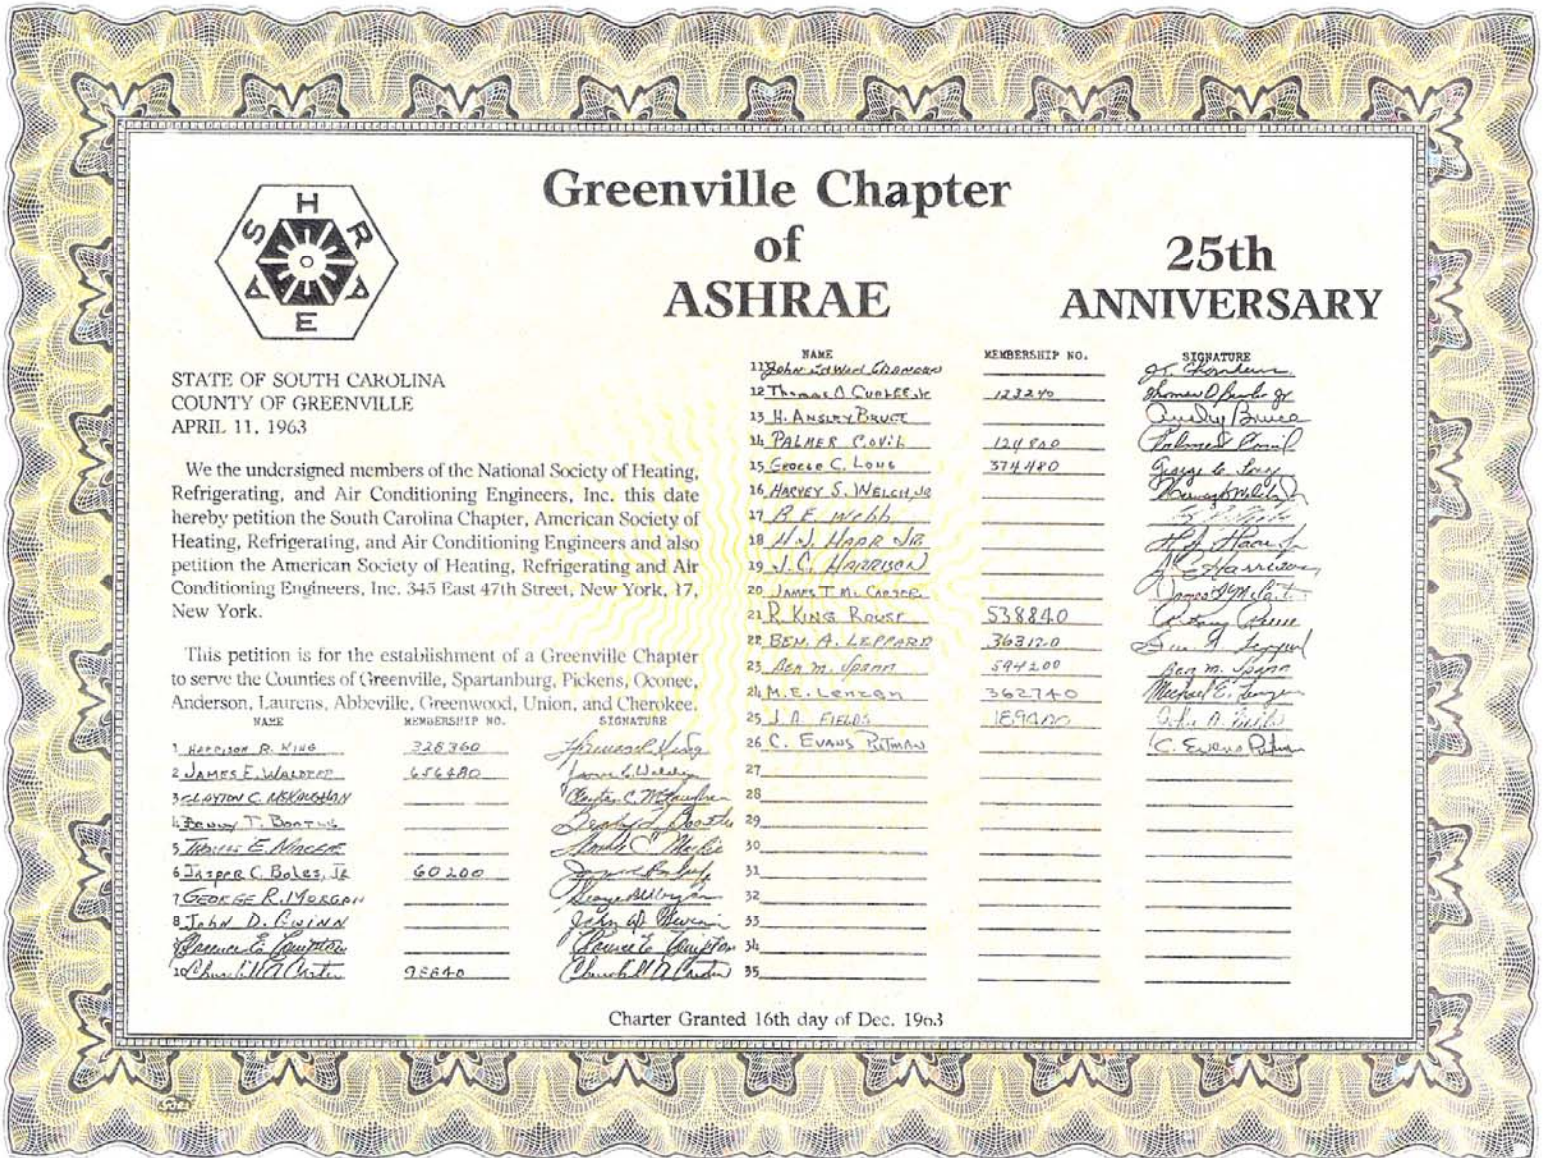 Greenville Chapter
of
ASHRAE
25th
ANNIVERSARY
ASHRAE
STATE OF SOUTH CAROLINA
COUNTY OF GREENVILLE
APRIL 11, 1963
We the undersigned members of the National Society of Heating,
Refrigerating, and Air Conditioning Engineers, Inc. this date
hereby petition the South Carolina Chapter, American Society of
Heating, Refrigerating, and Air Conditioning Engineers and also
petition the American Society of Heating, Refrigerating and Air
Conditioning Engineers, Inc. 345 East 47th Street, New York, 17,
New York.
This petition is for the establishment of a Greenville Chapter
to serve the Counties of Greenville, Spartanburg, Pickens, Oconee,
Anderson, Laurens, Abbeville, Greenwood, Union, and Cherokee.
NAME MEMBERSHIP NO. SIGNATURE
1 HARRISON R. KING 328360
2 JAMES E. 656480
3 CLAYTON C. McKAUGHAN
4 T.
5 E.
6 JASPER C. BOLES, JR 60200
7 GEORGE R. MORGAN
8 JOHN D. GWINN
9 Clarence E.
10 Churchill A Carter Churchill A Carter
NAME MEMBERSHIP NO. SIGNATURE
11 John Edward
12 Thomas D 123240
13 H. ANSLEY BRUCE Ansley Bruce
14 PALMER COVIL
15 GEORGE C. LONG 374480 George C. Long
16 HARVEY S. WELCH, JR
17 Webb
18 H.J. HAAR JR.
19 J.C. HARRISON J C Harrison
20 JAMES T. McCARTER
21 R. KING ROUSE 538840
22 BEN. A. LEPPARD
23 Ben M. Spann 594200 Ben M. Spann
24 M.E. Lenzen 362740
25 J.A. FIELDS
26 C. EVANS PUTMAN C. Evans Putman
27
28
29
30
31
32
33
34
35
Charter Granted 16th day of Dec. 1963